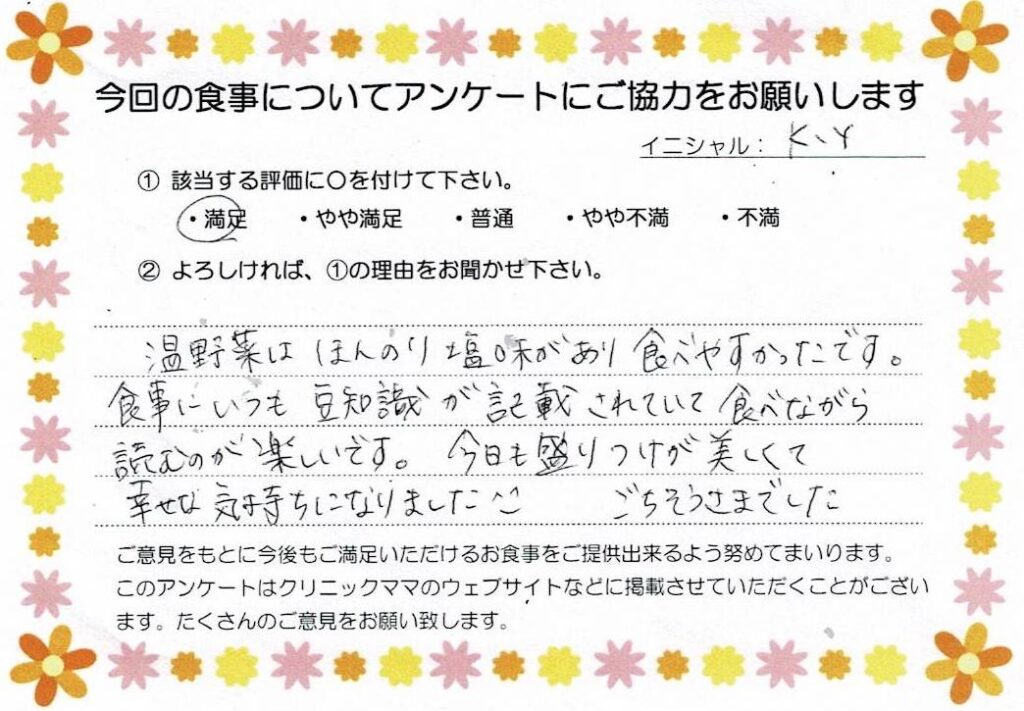 今回の食事についてアンケートにご協力をお願いします
イニシャル： K、Y
① 該当する評価に○を付けて下さい。
・満足 ・やや満足 ・普通 ・やや不満 ・不満
② よろしければ、①の理由をお聞かせ下さい。
温野菜は ほんのり塩味があり 食べやすかったです。
食事にいつも 豆知識が記載されていて 食べながら
読むのが楽しいです。 今日も盛りつけが美しくて
幸せな気持ちになりました^^ ごちそうさまでした
ご意見をもとに今後もご満足いただけるお食事をご提供出来るよう努めてまいります。
このアンケートはクリニックママのウェブサイトなどに掲載させていただくことがござい
ます。たくさんのご意見をお願い致します。